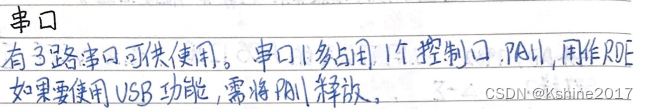 串口
有3路串口可供使用。串口1多占用1个控制口.PA11,用作RDE
如果要使用USB功能,需将PA11释放。
CSDN @Kshine2017